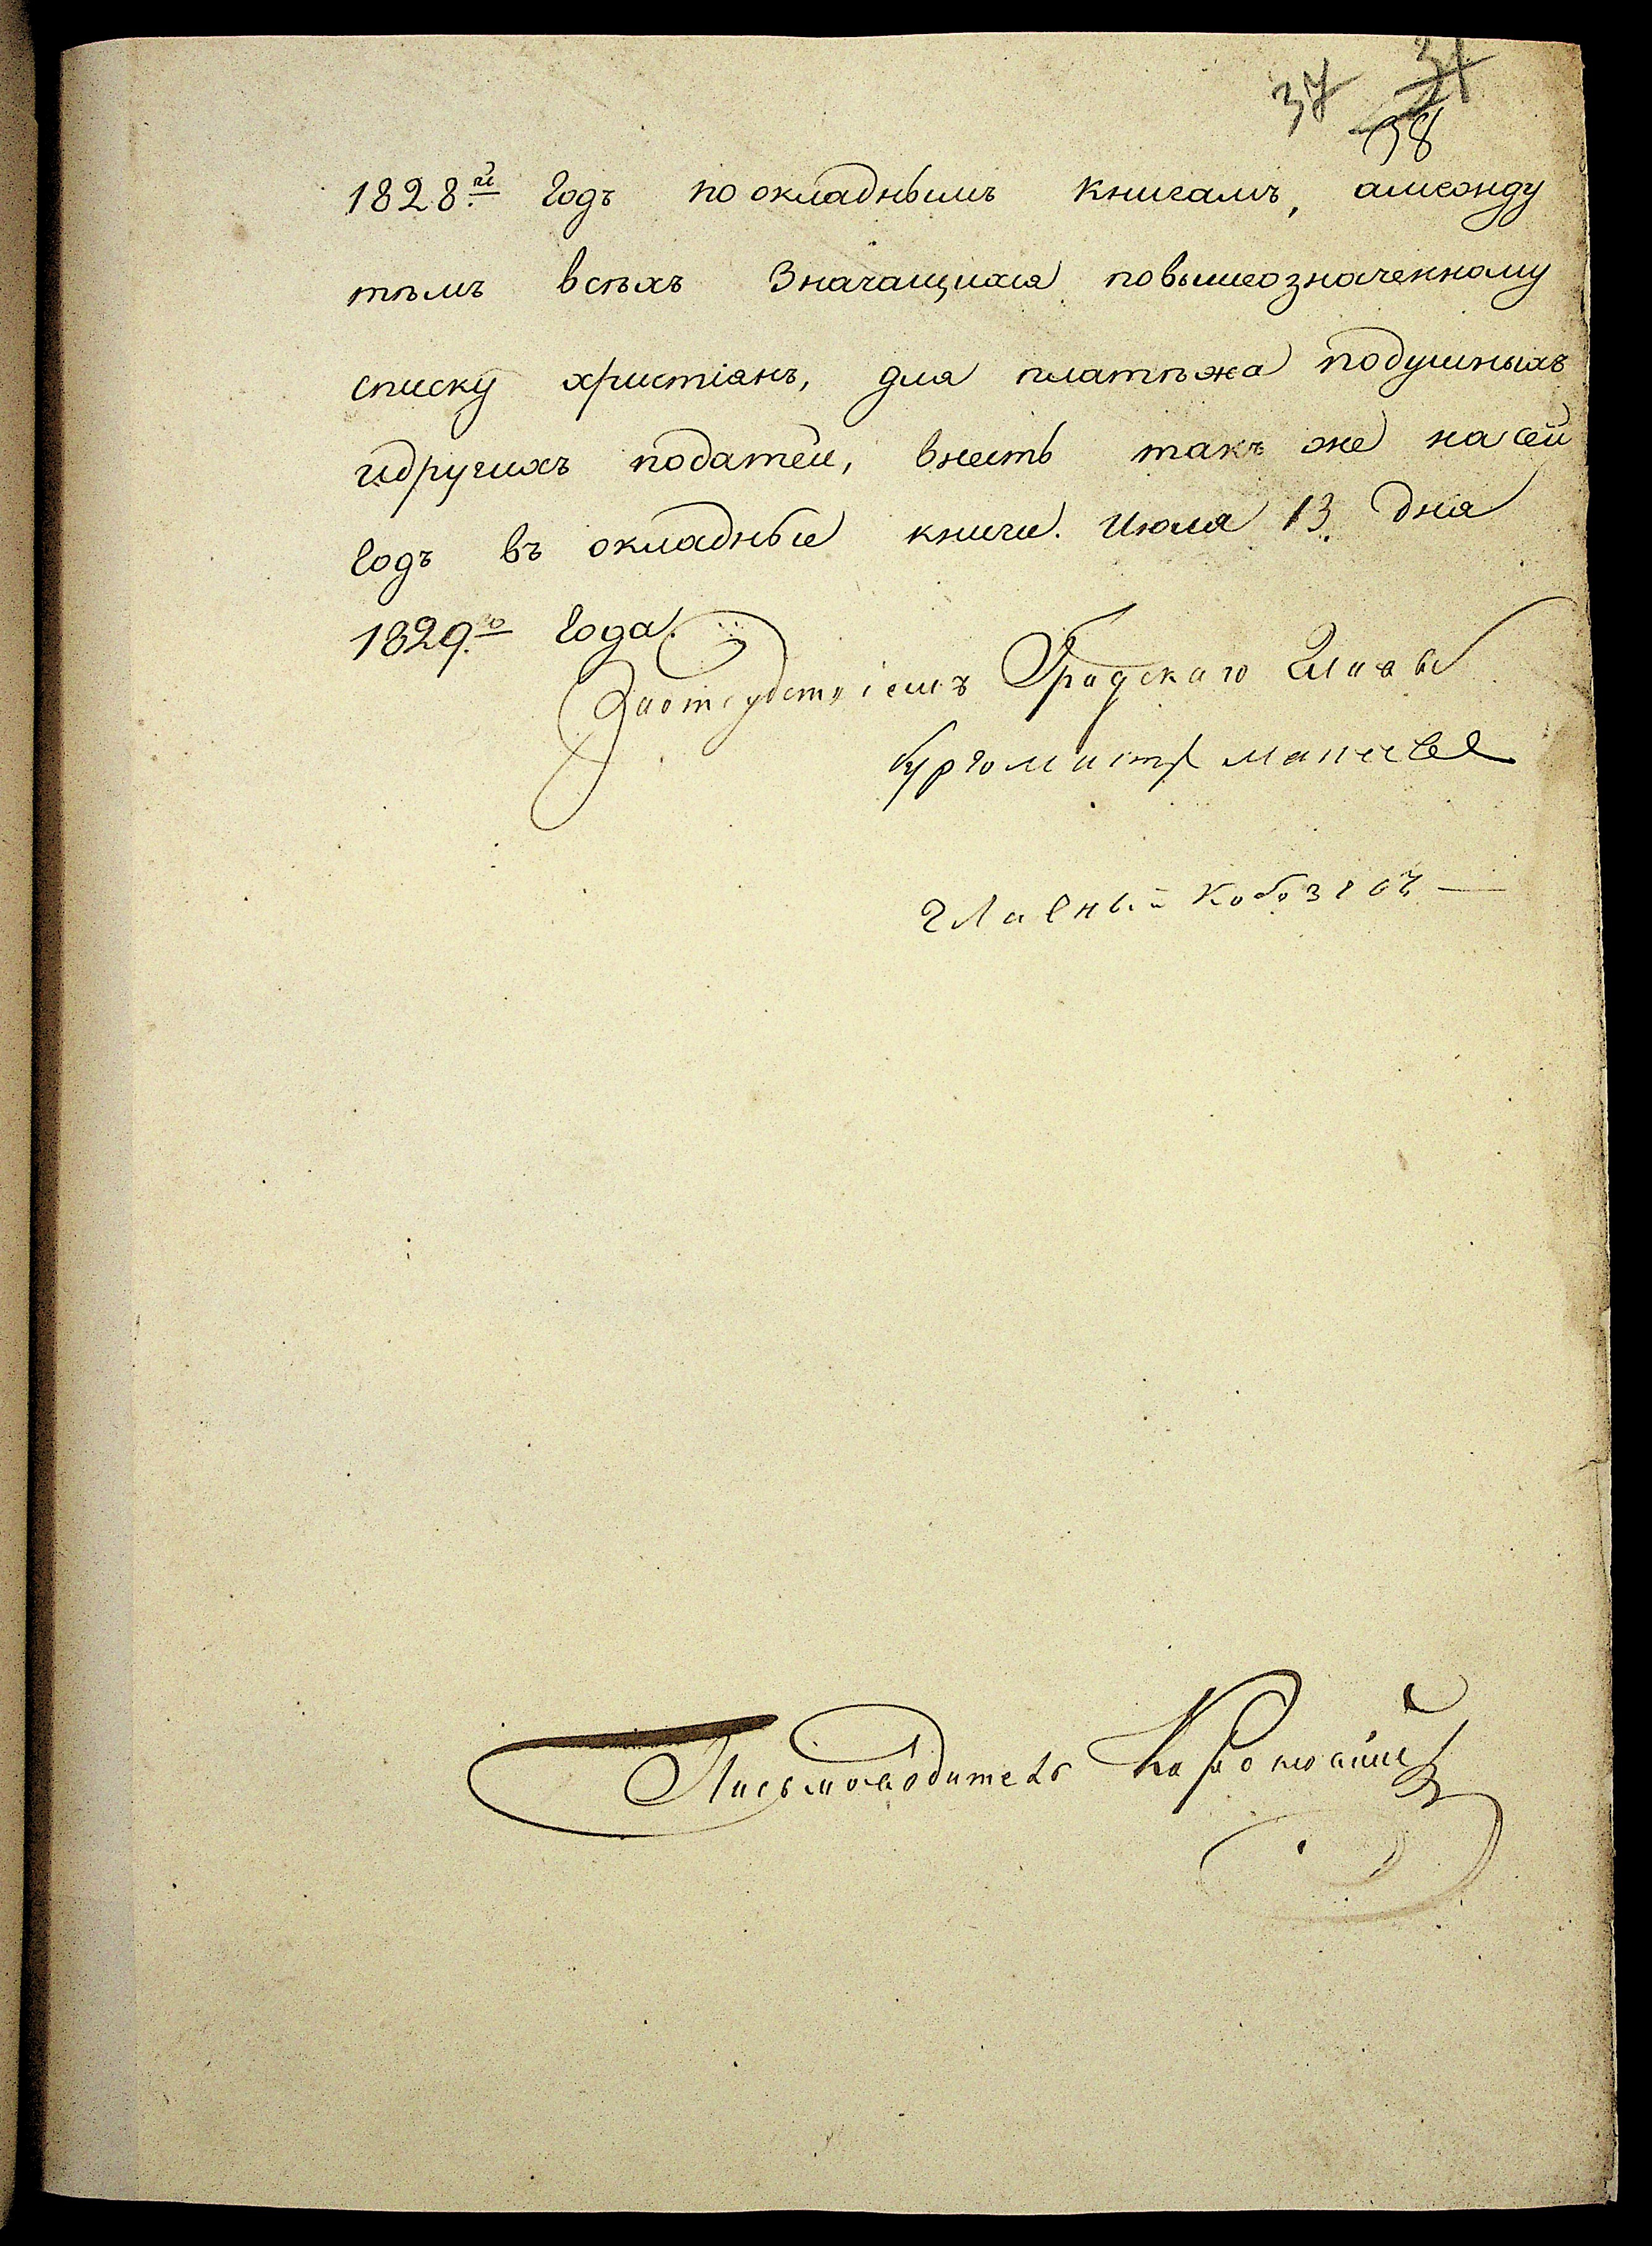 37 31
38
1828.й годъ по окладнымъ книгамъ, амежду
тѣмъ всѣхъ значащихся повышеозначенному
списку христіянъ, для платѣжа подушныхъ
идругихъ податей, внесть такъ же на сей
годъ въ окладные книги. Июля 13. дня
1829.го года.
Заотсудствіемъ Градскаго Главы
бургомистр
главный Кобозевъ
Письмоводитель